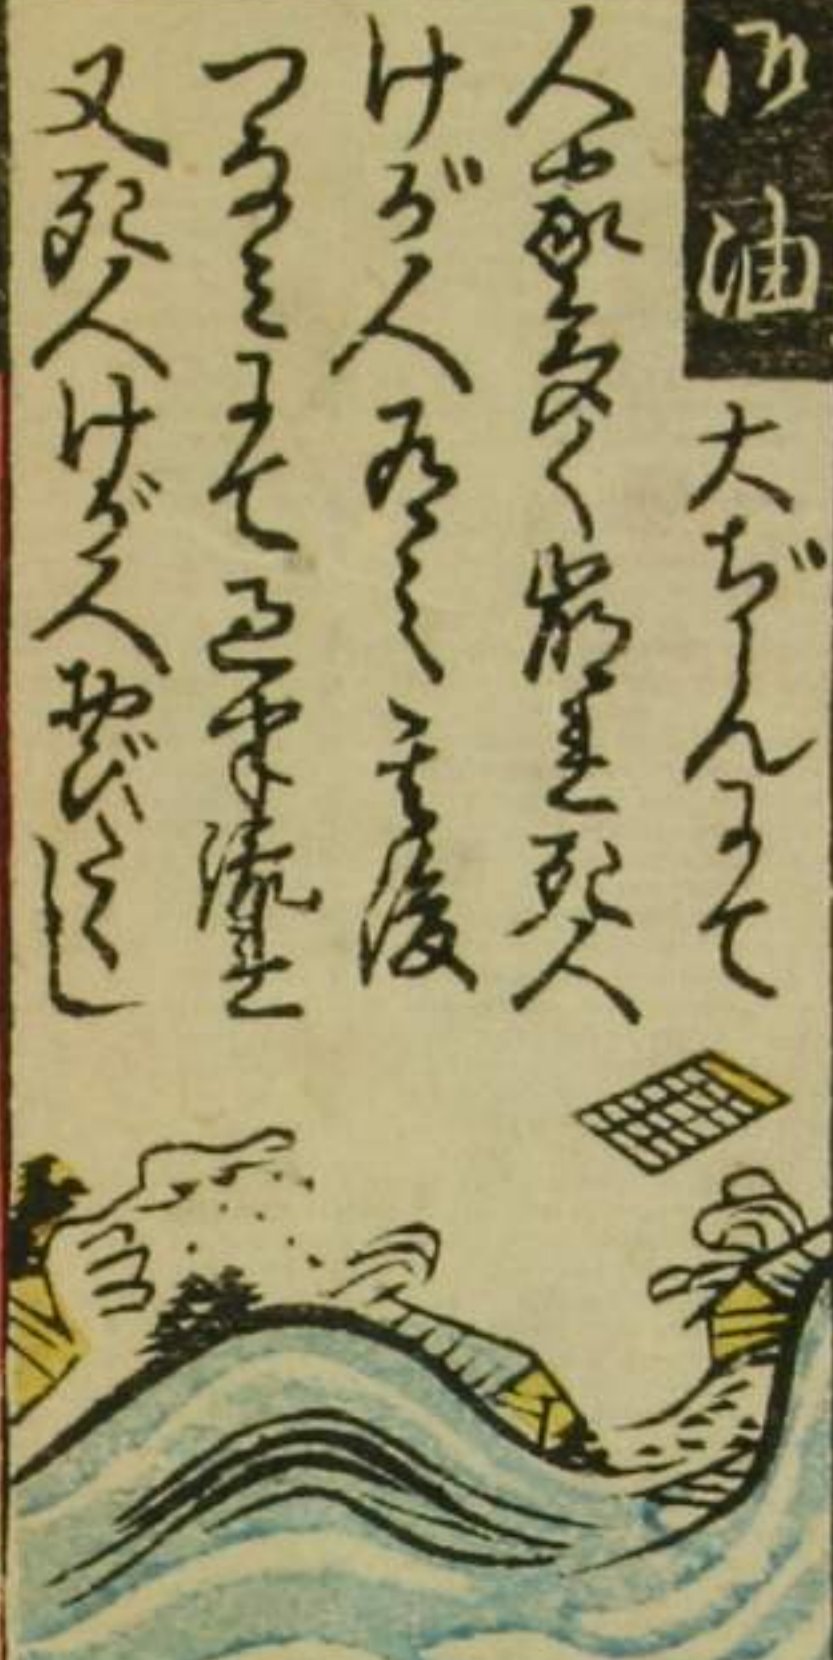 御油
大ぢしんにて
人家多く崩れ死人
けが人有之其後
つなみにて過半流れ
又死人けが人おびたゝし